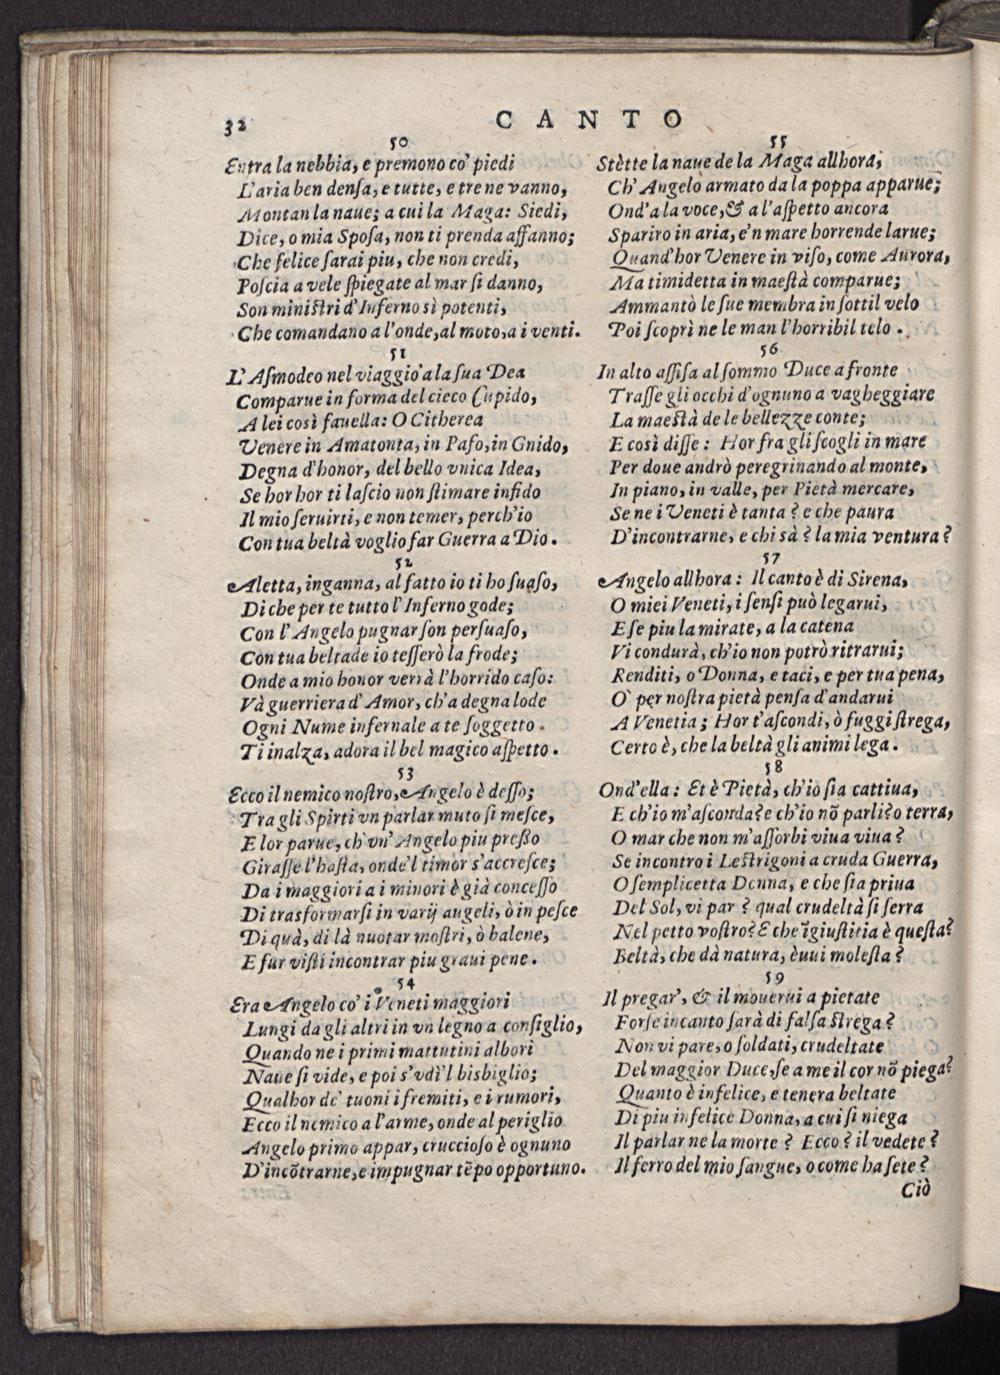 32
CANTO
50
Entra la nebbia, e premono co' piedi
L'aria ben denſa, e tutte, e tre ne vanno,
Montan la naue; a cui la Maga: Siedi,
Dice, o mia Spoſa, non ti prenda affanno;
Che felice ſarai piu, che non credi,
Poſcia a vele ſpiegate al mar ſi danno,
Son miniſtri d'Inferno sì potenti,
Che comandano a l'onde, al moto, a i venti.
51
L'Aſmodeo nel viaggio a la ſua Dea
Comparue in forma del cieco Cupido,
A lei così fauella: O Citherea
Venere in Amatonta, in Pafo, in Gnido,
Degna d'honor, del bello vnica Idea,
Se hor hor ti laſcio non ſtimare infido
Il mio ſeruirti, e non temer, perch'io
Con tua beltà voglio far Guerra a Dio.
52
Aletta, inganna, al fatto io ti ho ſuaſo,
Di che per te tutto l'Inferno gode;
Con l'Angelo pugnar ſon perſuaſo,
Con tua beltade io teſſerò la frode;
Onde a mio honor verrà l'horrido caſo:
Và guerriera d'Amor, ch'a degna lode
Ogni Nume infernale a te ſoggetto.
Ti inalza, adora il bel magico aſpetto.
53
Ecco il nemico noſtro, Angelo è deſſo;
Tra gli Spirti vn parlar muto ſi meſce,
E lor parue, ch'vn' Angelo piu preßo
Giraſſe l'haſta, onde'l timor s'accreſce;
Da i maggiori a i minori è già conceſſo
Di trasformarſi in varij augeli, ò in peſce
Di quà, di là nuotar moſtri, ò balene,
E fur viſti incontrar piu graui pene.
54
Era Angelo co' i Veneti maggiori
Lungi da gli altri in vn legno a conſiglio,
Quando ne i primi mattutini albori
Naue ſi vide, e poi s'vdì'l bisbiglio;
Qual hor de' tuoni i fremiti, e i rumori,
Ecco il nemico a l'arme, onde al periglio
Angelo primo appar, cruccioſo è ognuno
D'incõtrarne, e impugnar tẽpo opportuno.
55
Stètte la naue de la Maga allhora,
Ch'Angelo armato da la poppa apparue;
Ond'a la voce, & a l'aſpetto ancora
Spariro in aria, e'n mare horrende larue;
Quand'hor Venere in viſo, come Aurora,
Ma timidetta in maeſtà comparue;
Ammantò le ſue membra in ſottil velo
Poi ſcoprì ne le man l'horribil telo.
56
In alto aſſiſa al ſommo Duce a fronte
Traſſe gli occhi d'ognuno a vagheggiare
La maeſtà de le bellezze conte;
E così diſſe: Hor fra gli ſcogli in mare
Per doue andrò peregrinando al monte,
In piano, in valle, per Pietà mercare,
Se ne i Veneti è tanta? e che paura
D'incontrarne, e chi sà? la mia ventura?
57
Angelo allhora: Il canto è di Sirena,
O miei Veneti, i ſenſi può legarui,
E ſe piu la mirate, a la catena
Vi condurà, ch'io non potrò ritrarui;
Renditi, o Donna, e taci, e per tua pena,
O per noſtra pietà penſa d'andarui
A Venetia; Hor t'aſcondi, ò fuggi ſtrega,
Certo è, che la beltà gli animi lega.
58
Ond'ella: Et è Pietà, ch'io ſia cattiua,
E ch'io m'aſconda? e ch'io nõ parli? o terra,
O mar che non m'aſſorbi viua viua?
Se incontro i Leſtrigoni a cruda Guerra,
O ſemplicetta Donna, e che ſia priua
Del Sol, vi par? qual crudeltà ſi ſerra
Nel petto voſtro? E che ĩgiuſtitia è queſta?
Beltà, che dà natura, èuui moleſta?
59
Il pregar', & il mouerui a pietate
Forſe incanto ſarà di falſa ſtrega?
Non vi pare, o ſoldati, crudeltate
Del maggior Duce, ſe a me il cor nõ piega?
Quanto è infelice, e tenera beltate
Di piu infelice Donna, a cui ſi niega
Il parlar ne la morte? Ecco? il vedete?
Il ferro del mio ſangue, o come ha ſete?
Ciò